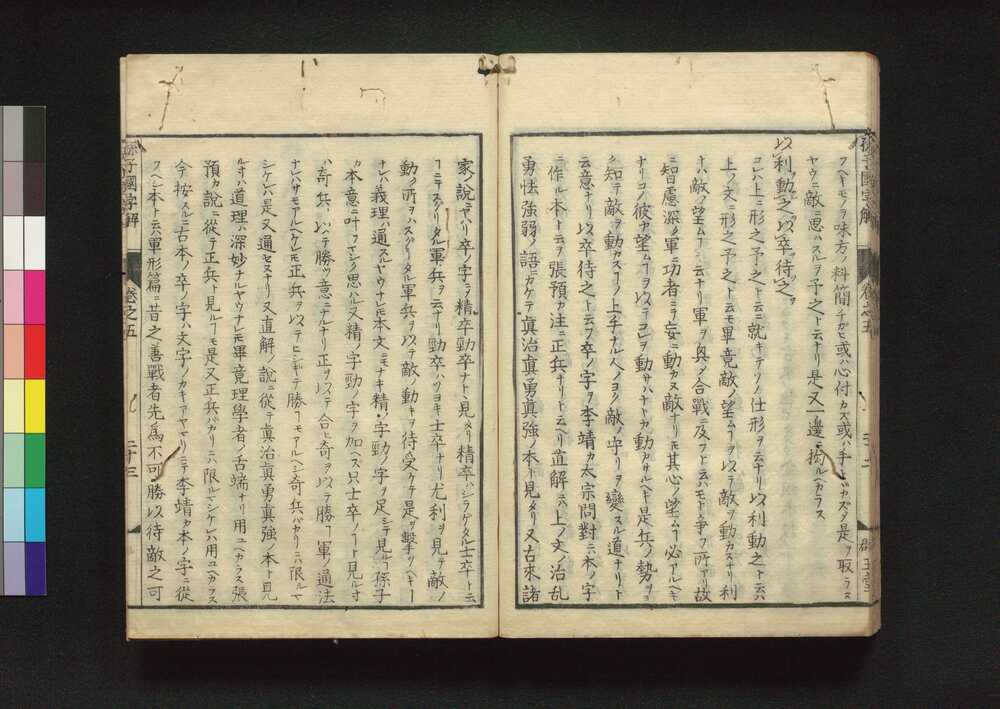 フヘキモノヲ味方ノ料簡チガヒ或ハ心付カズ或ハ手ヲ カズソ是ヲ取ラス
ヤウニ敵ニ思ハスルヲ予之ト云ナリ是又一邊ニ拘ルヘカラス
以利動之以卒待之
コレハ上ニ形之予之ト云ニ就キテソノ仕形ヲ云ナリ以利動之ト云ハ
上ノ文ノ形之予之ト云モ畢竟敵ノ望ムヿヲ以テ敵ヲ動カスナリ利
トハ敵ノ望ムヿヲ云ナリ軍ヲ興シ合戰ニ及フヒ云ハモト爭フ所アリ故
ニ智慮深ク軍ニ功者ニ妄ニ動カヌ敵ナリトモ其心ノ望ムヿ必アルヘキ
ナリコノ彼カ望ムヿヲ以テコレヲ動サハナトカ動カサルヘキ是兵ノ勢ヲヨ
ク知テ敵ヲ動カスコノ上手ナル人ノヨク敵ノ守リヲ變スル道ナリト
云意ナリ以卒待之ト云フ卒ノ字ヲ李靖カ太宗問對ニハ本ノ字
ニ作ル本ハト云ヲ張預カ注ニ正兵ナリト云ヘリ直解ニハ上ノ文ノ治亂
勇怯強弱ノ語ニカケテ眞治眞勇眞強ノ本ト見タリ又古來諸
家ノ說ニヤハリ卒ノ字ヲ精卒勁卒ナト、見タリ精卒ハシラケタル士卒ト云
フニテスクリタル軍兵ヲ云ナリ勁卒ハツヨキ士卒ナリ尤利ヲ見テ敵ノ
動ク所ヲハスグリタル軍兵ヲ以テ敵ノ動キヲ待受ケテ是ヲ擊ツヘキ
ナレハ義理ハ通スルヤウナレトモ本文ニモナキ精ノ字勁ノ字ヲ足シテ見ルヿ孫子
カ本意ニ叶フマシク思ハル又精ノ字勁ノ字ヲ加ヘズ只士卒ノヿト見ル寸
ハ奇兵ヲ以テ勝ツ意ニナルナリ正ヲ以テ合ヒ奇ヲ以テ勝ツヿ軍ノ通法
ナレハサモアルヘケレトモ正兵ヲ以テヒシギテ勝ツヿモアルヘシ奇兵バカリニハ限ルマ
シケレハ是又通セヌナリ又直解ノ說ニ從テ眞治眞勇眞強ノ本ト見
ル寸ハ道理ハ深妙ナルヤウナレトモ畢竟理學者ノ舌端ナリ用ユヘカラス張
預カ說ニ從テ正兵ト見ルヿモ是又正兵バカリニハ限ルマシケレハ用ユヘカラス
今按スルニ古本ノ卒ノ字ハ文字ノカキアヤマリニテ李靖カ本ノ字ニ從
フヘシ本トハ云軍形篇ニ昔之善戰者先為不可勝以待敵之可
孫子國字解
卷之五
二十三